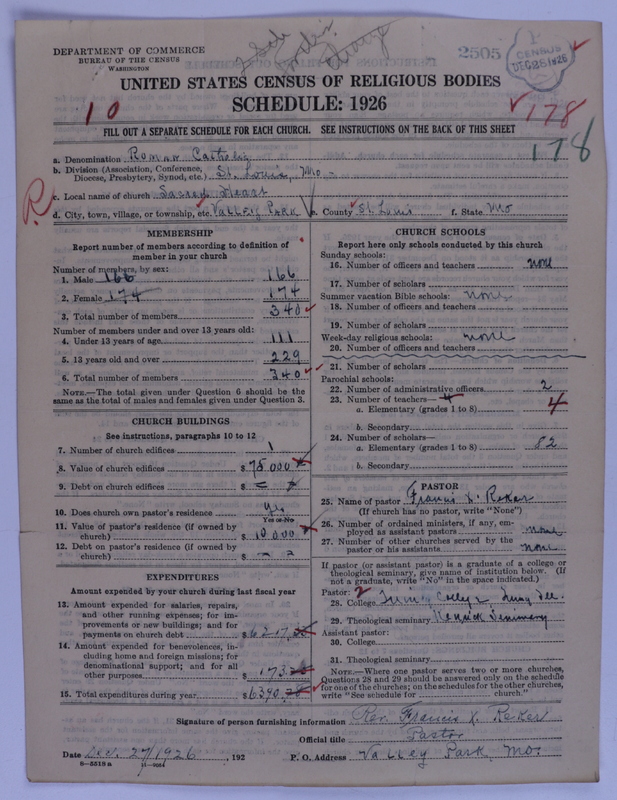 DEPARTMENT OF COMMERCE
BUREAU OF THE CENSUS
WASHINGTON
2505
CENSUS
DEC 28 1926
UNITED STATES CENSUS OF RELIGIOUS BODIES
SCHEDULE: 1926
10
178
178
FILL OUT A SEPARATE SCHEDULE FOR EACH CHURCH. SEE INSTRUCTIONS ON THE BACK OF THIS SHEET
a. Denomination Roman Catholic
b. Division (Association, Conference, Diocese, Presbytery, Synod, etc.) St. Louis, Mo-
c. Local name of church Sacred Heart
d. City, town, village, or township, etc. Valley Park e. County St. Louis f. State Mo
R
MEMBERSHIP
Report number of members according to definition of
member in your church
Number of members, by sex:
1. Male 166 166
2. Female 174 174
3. Total number of members 340
Number of members under and over 13 years old:
4. Under 13 years of age 111
5. 13 years old and over 229
6. Total number of members 340
NOTE.—The total given under Question 6 should be
same as the total of males and females given under Question 3.
CHURCH BUILDINGS
See instructions, paragraphs 10 to 12
7. Number of church edifices 1
8. Value of church edifices $75,000
9. Debt on church edifices $
10. Does church own pastor's residence Yes
Yes or No
11. Value of pastor's residence (if owned by
church) $10,000
12. Debt on pastor's residence (if owned by
church) $
EXPENDITURES
Amount expended by your church during last fiscal year
13. Amount expended for salaries, repairs,
and other running expenses; for im-
provements or new buildings; and for
payments on church debt $6217
14. Amount expended for benevolences, in-
cluding home and foreign missions; for
denominational support; and for all
other purposes $173
15. Total expenditures during year $6390
CHURCH SCHOOLS
Report here only schools conducted by this church
Sunday schools:
16. Number of officers and teachers none
17. Number of scholars
Summer vacation Bible schools: none
18. Number of officers and teachers
19. Number of scholars
Week-day religious schools: none
20. Number of officers and teachers
21. Number of scholars
Parochial schools:
22. Number of administrative officers 2
23. Number of teachers— 4
a. Elementary (grades 1 to 8) 4
b. Secondary
24. Number of scholars—
a. Elementary (grades 1 to 8) 82
b. Secondary
PASTOR
25. Name of pastor Francis X. Reker
(If church has no pastor, write "None")
26. Number of ordained ministers, if any, em-
ployed as assistant pastors none
27. Number of other churches served by the
pastor or his assistants none
If pastor (or assistant pastor) is a graduate of a college or
theological seminary, give name of institution below. (If
not a graduate, write "No" in the space indicated.)
Pastor: 2
28. College Quincy College Quincy Ill.
29. Theological seminary Kenrick Seminary
Assistant pastor:
30. College
31. Theological seminary
NOTE.—Where one pastor serves two or more churches,
Questions 28 and 29 should be answered only on the schedule
for one of the churches; on the schedules for the other churches,
write "See schedule for ______ church."
Signature of person furnishing information Rev. Francis X. Reker
Official title Pastor
Date Dec. 27/1926, 192 P. O. Address Valley Park, Mo.
8—5518a